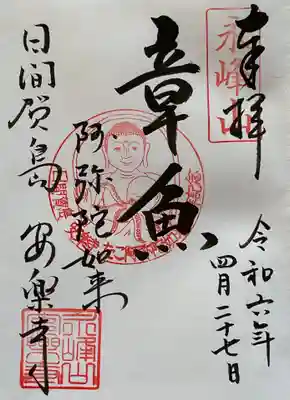 奉拝
永峰山
令和六年
四月二十七日
章魚
阿弥陀如来
日間賀島
安楽寺
永峰山
安樂寺